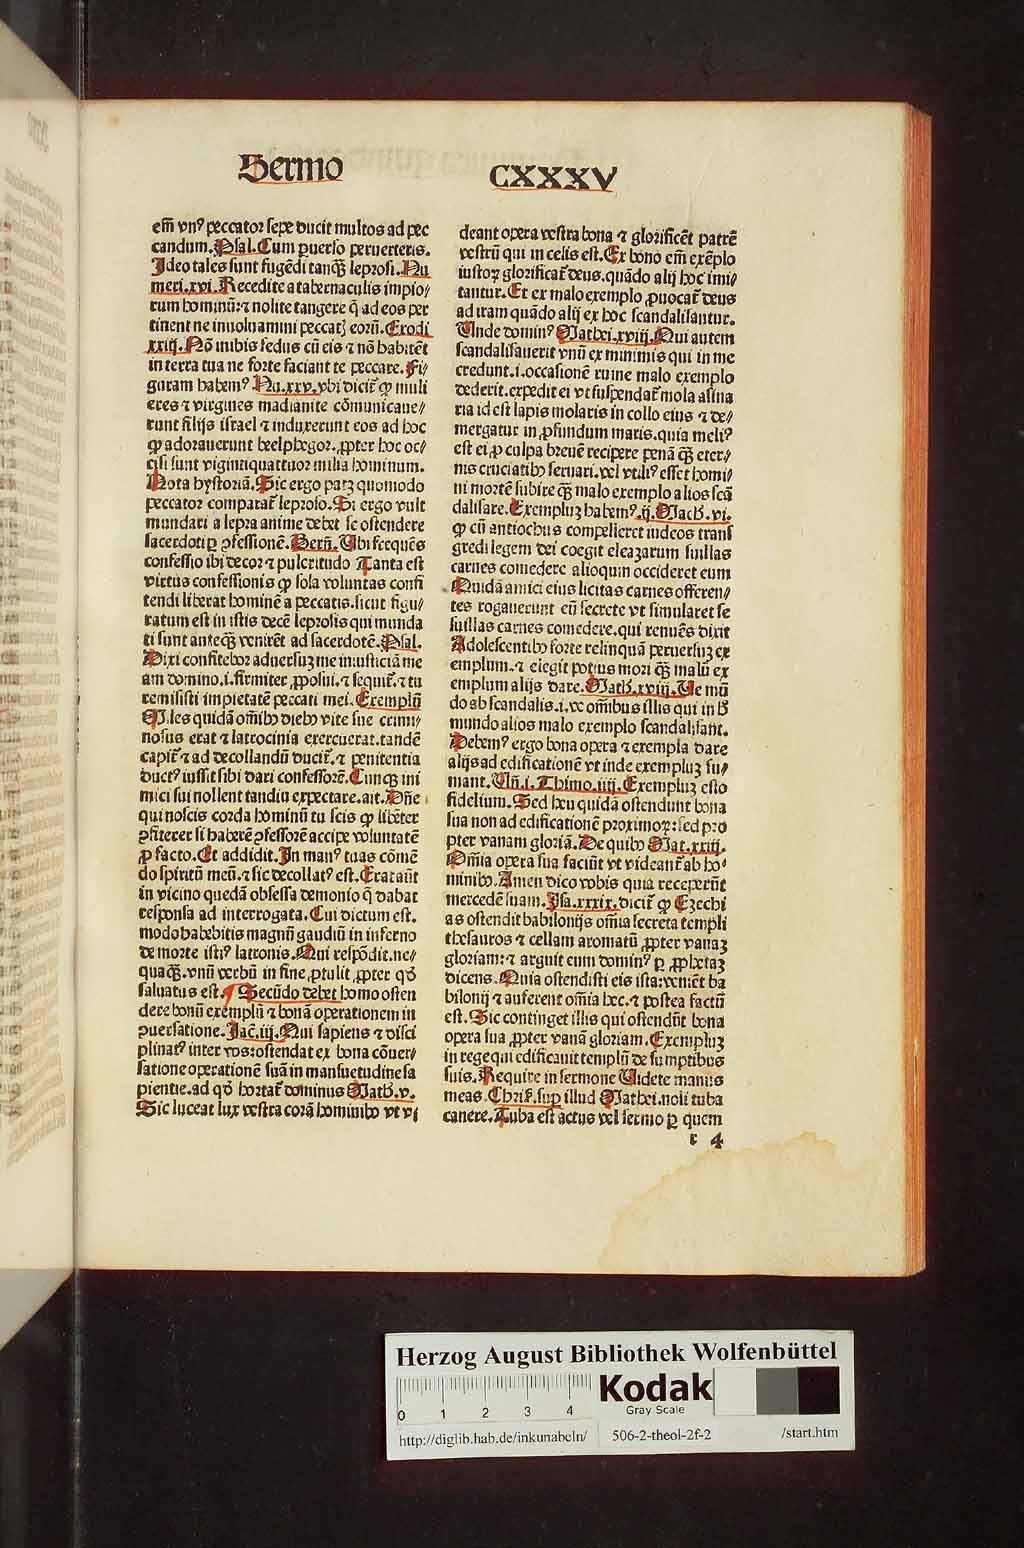 Sermo
CXXXV
em̄ vnꝰ peccator sepe ducit multos ad pec
candum. Psal. Cum ꝑuerso peruerteris.
Ideo tales sunt fugēdi tanq̄ꝫ leprosi. Nu
meri. xvi. Recedite a tabernaculis impio/
rum hominū: ⁊ nolite tangere q̄ ad eos per
tinent ne inuoluamini peccatꝭ eorū. Exodi
xxiij. Nō inibis fedus cū eis ⁊ nō habitēt
in terra tua ne forte faciant te peccare. Fi/
guram habemꝰ Nu. xxv. vbi dicit̄ ꝙ muli
eres ⁊ virgines madianite cōmunicaue/
runt filijs israel ⁊ induxerunt eos ad hoc
ꝙ adorauerunt beelphegor. ꝓpter hoc oc/
cisi sunt vigintiquattuor milia hominum.
Nota hystoriā. Sic ergo patꝫ quomodo
peccator comparat̄ leproso. Si ergo vult
mundari a lepra anime debet se ostendere
sacerdoti ꝑ ꝯfessionē. Bern̄. Vbi frequēs
confessio ibi decor ⁊ pulcritudo Tanta est
virtus confessionis ꝙ sola voluntas confi
tendi liberat hominē a peccatis. sicut figu/
ratum est in istis decē leprosis qui munda
ti sunt anteq̄ꝫ venirēt ad sacerdotē. Psal.
Dixi confitebor aduersuꝫ me iniusticiā me
am domino. i. firmiter ꝓposui. ⁊ sequit̄. ⁊ tu
remisisti impietatē peccati mei. Exemplū
Miles quidā oībꝰ diebꝰ vite sue crimi/
nosus erat ⁊ latrocinia exercuerat. tandē
capit̄ ⁊ ad decollandū ducit̄. ⁊ penitentia
ductꝰ iussit sibi dari confessorē. Cunqꝫ ini
mici sui nollent tandiu expectare. ait. Dn̄e
qui noscis corda hominū tu scis ꝙ libēter
ꝯfiterer si haberē ꝯfessorē accipe voluntatē
ꝓ facto. Et addidit. In manꝰ tuas cōmē
do spiritū meū. ⁊ sic decollatꝰ est. Erat aūt
in vicino quedā obsessa demonio q̄ dabat
responsa ad interrogata. Cui dictum est.
modo habebitis magnū gaudiū in inferno
de morte istiꝰ latronis. Qui respōdit. ne/
quaq̄ꝫ. vnū verbū in fine ꝓtulit ꝓpter qd̄
saluatus est. ¶ Secūdo debet homo osten
dere bonū exemplū ⁊ bonā operationem in
ꝯuersatione. Jac. iij. Qui sapiens ⁊ disci
plinatꝰ inter vos: ostendat ex bona cōuer/
satione operationē suā in mansuetudine sa
pientie. ad qd̄ hortat̄ dominus Math. v.
Sic luceat lux vestra corā hominibꝰ vt vi
deant opera vestra bona ⁊ glorificēt patrē
vestrū qui in celis est. Ex bono em̄ exēplo
iustoꝝ glorificat̄ deus. quādo alij hoc imi/
tantur. Et ex malo exemplo ꝓuocat̄ deus
ad iram quādo alij ex hoc scandalisantur.
Unde dominꝰ Mathei. xviij. Qui autem
scandalisauerit vnū ex minimis qui in me
credunt. i. occasionē ruine malo exemplo
dederit. expedit ei vt suspendat̄ mola asina
ria id est lapis molaris in collo eius ⁊ de/
mergatur in ꝓfundum maris. quia meliꝰ
est ei ꝓ culpa breuē recipere penā q̄ꝫ eter/
nis cruciatibꝰ seruari. vel vtiliꝰ esset homi/
ni mortē subire q̄ꝫ malo exemplo alios scā
dalisare. Exempluꝫ habemꝰ. ij. Mach. vi.
ꝙ cū antiochus compelleret iudeos trans
gredi legem dei coegit eleazarum suillas
carnes comedere alioquin occideret eum
Quidā amici eius licitas carnes offeren/
tes rogauerunt eū secrete vt simularet se
suillas carnes comedere. qui renuēs dixit
Adolescentibꝰ forte relinquā peruersuꝫ ex
emplum. ⁊ elegit potius mori q̄ꝫ malū ex
emplum alijs dare. Math. xviij. Ve mū
do ab scandalis. i. ve omnibus illis qui in h̄
mundo alios malo exemplo scandalisant.
Debemꝰ ergo bona opera ⁊ exempla dare
alijs ad edificationē vt inde exempluꝫ su/
mant. Un̄. i. Thimo. iiij. Exempluꝫ esto
fidelium. Sed heu quidā ostendunt bona
sua non ad edificationē proximoꝝ: sed pro
pter vanam gloriā. De quibꝰ Mat. xxiij.
Om̄ia opera sua faciūt vt videant̄ ab ho/
minibꝰ. Amen dico vobis quia receperūt
mercedē suam. Isa. xxxix. dicit̄ ꝙ Ezechi
as ostendit babilonijs om̄ia secreta templi
thesauros ⁊ cellam aromatū ꝓpter vanaꝫ
gloriam: ⁊ arguit eum dominꝰ ꝑ ꝓphetaꝫ
dicens. Quia ostendisti eis ista: veniēt ba
bilonij ⁊ auferent om̄ia hec. ⁊ postea factū
est. Sic continget illis qui ostendūt bona
opera sua ꝓpter vanā gloriam. Exempluꝫ
in rege qui edificauit templū de sumptibus
suis. Require in sermone Videte manus
meas. Chris. suꝑ illud Mathei. noli tuba
canere. Tuba est actus vel sermo ꝑ quem
r 4
Herzog August Bibliothek Wolfenbüttel
0 1 2 3 4
Kodak
Gray Scale
http://diglib.hab.de/inkunabeln/ 506-2-theol-2f-2 /start.htm